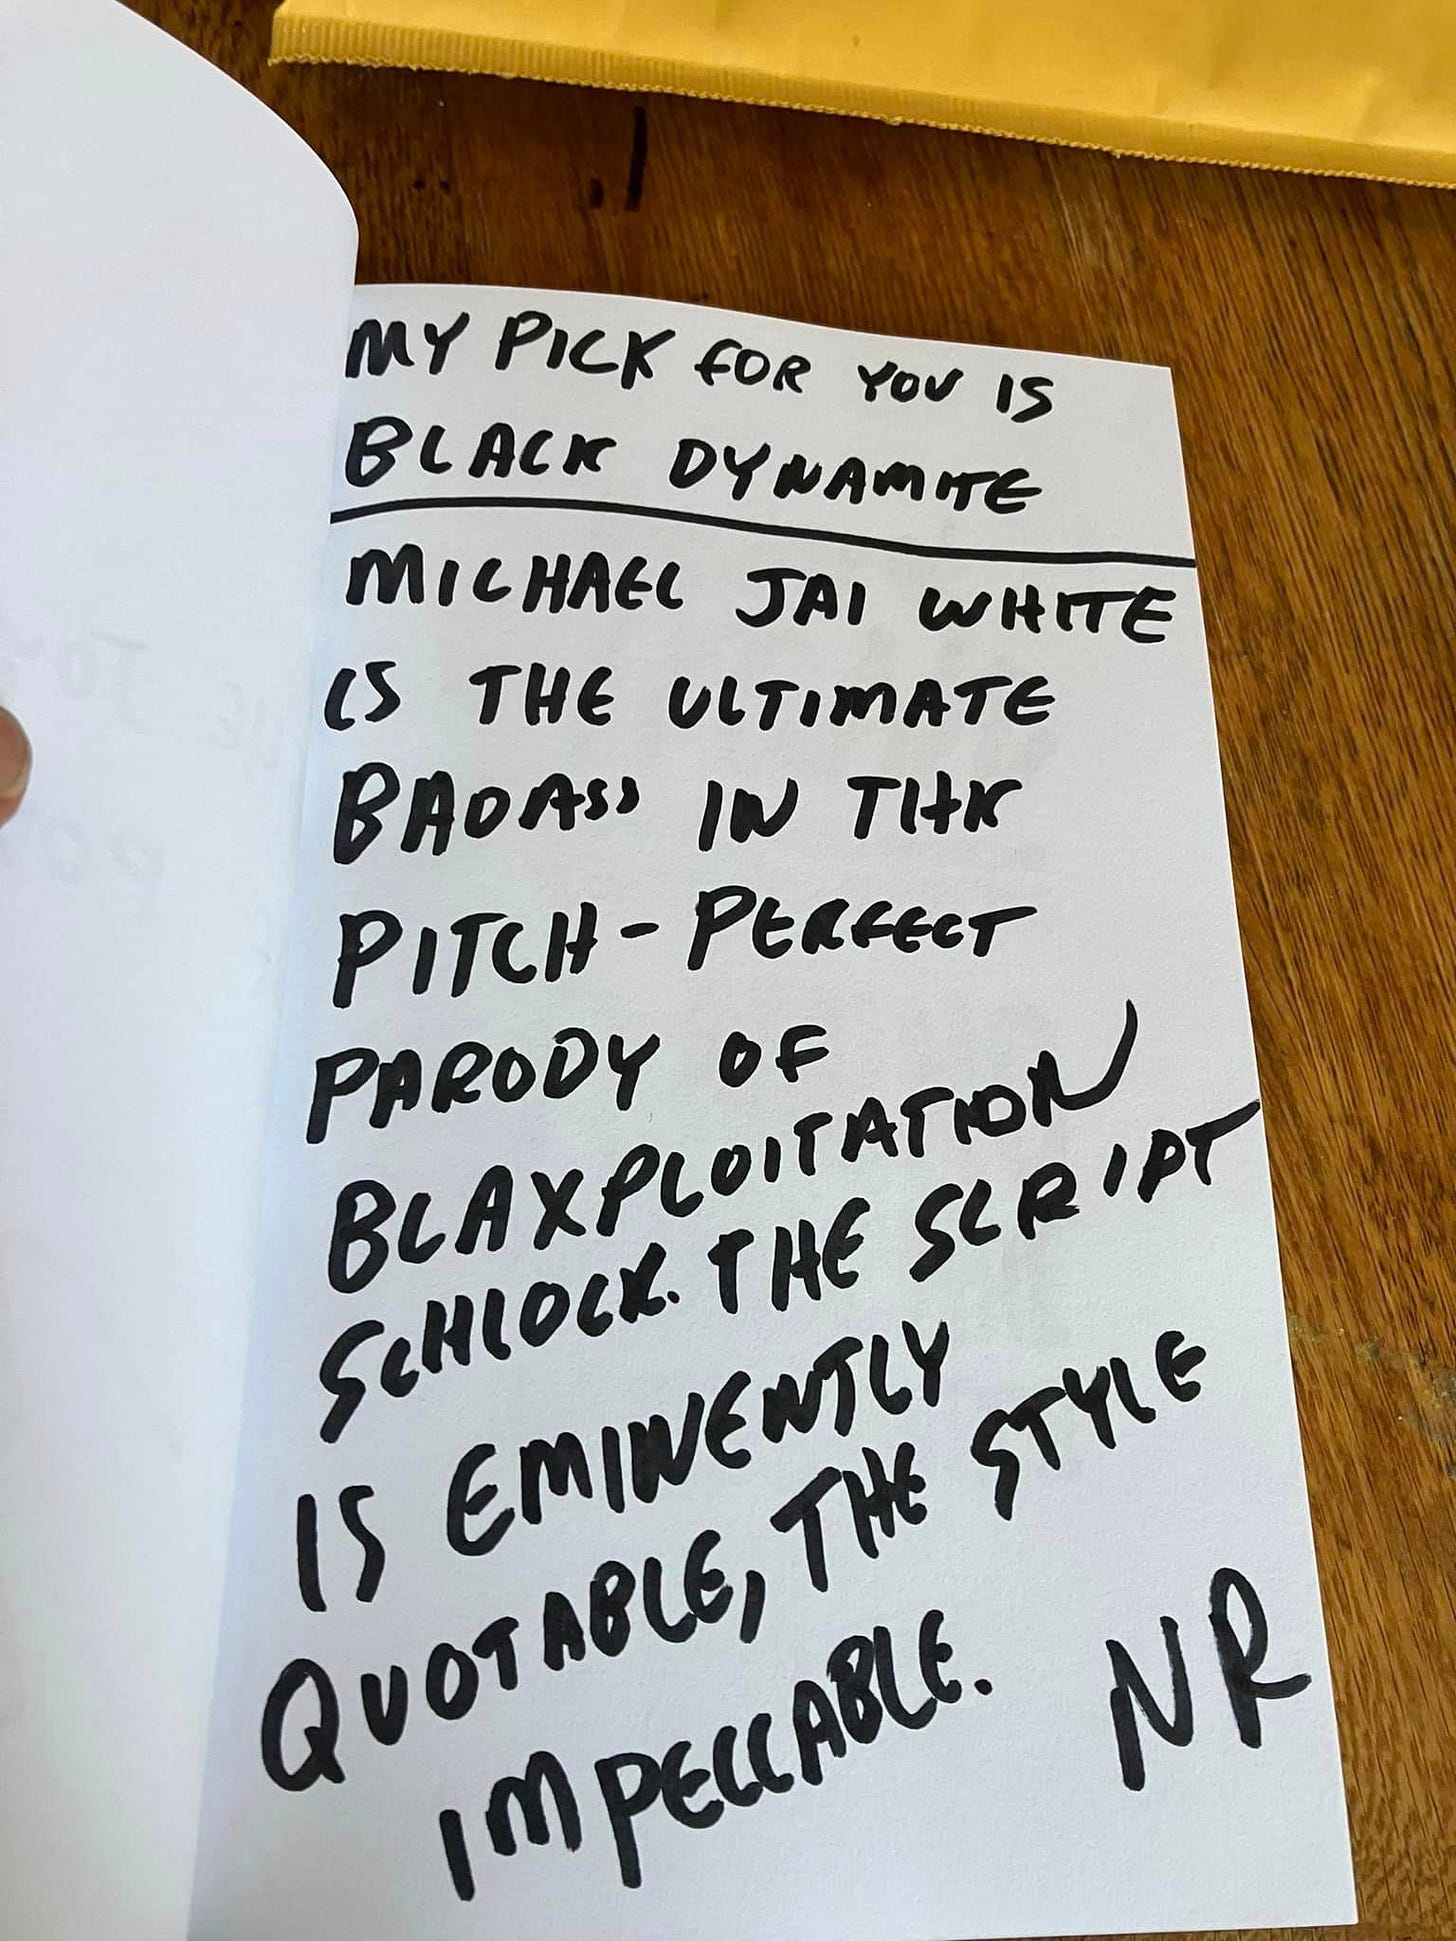 MY PICK FOR YOU IS
BLACK DYNAMITE
MICHAEL JAI WHITE
IS THE ULTIMATE
BADASS IN THK
PITCH-PERFECT
PARODY OF
BLAXPLOITATION
SCHLOCK. THE SCRIPT
IS EMINENTLY
QUOTABLE, THE STYLE
IMPELLABLE.
NR